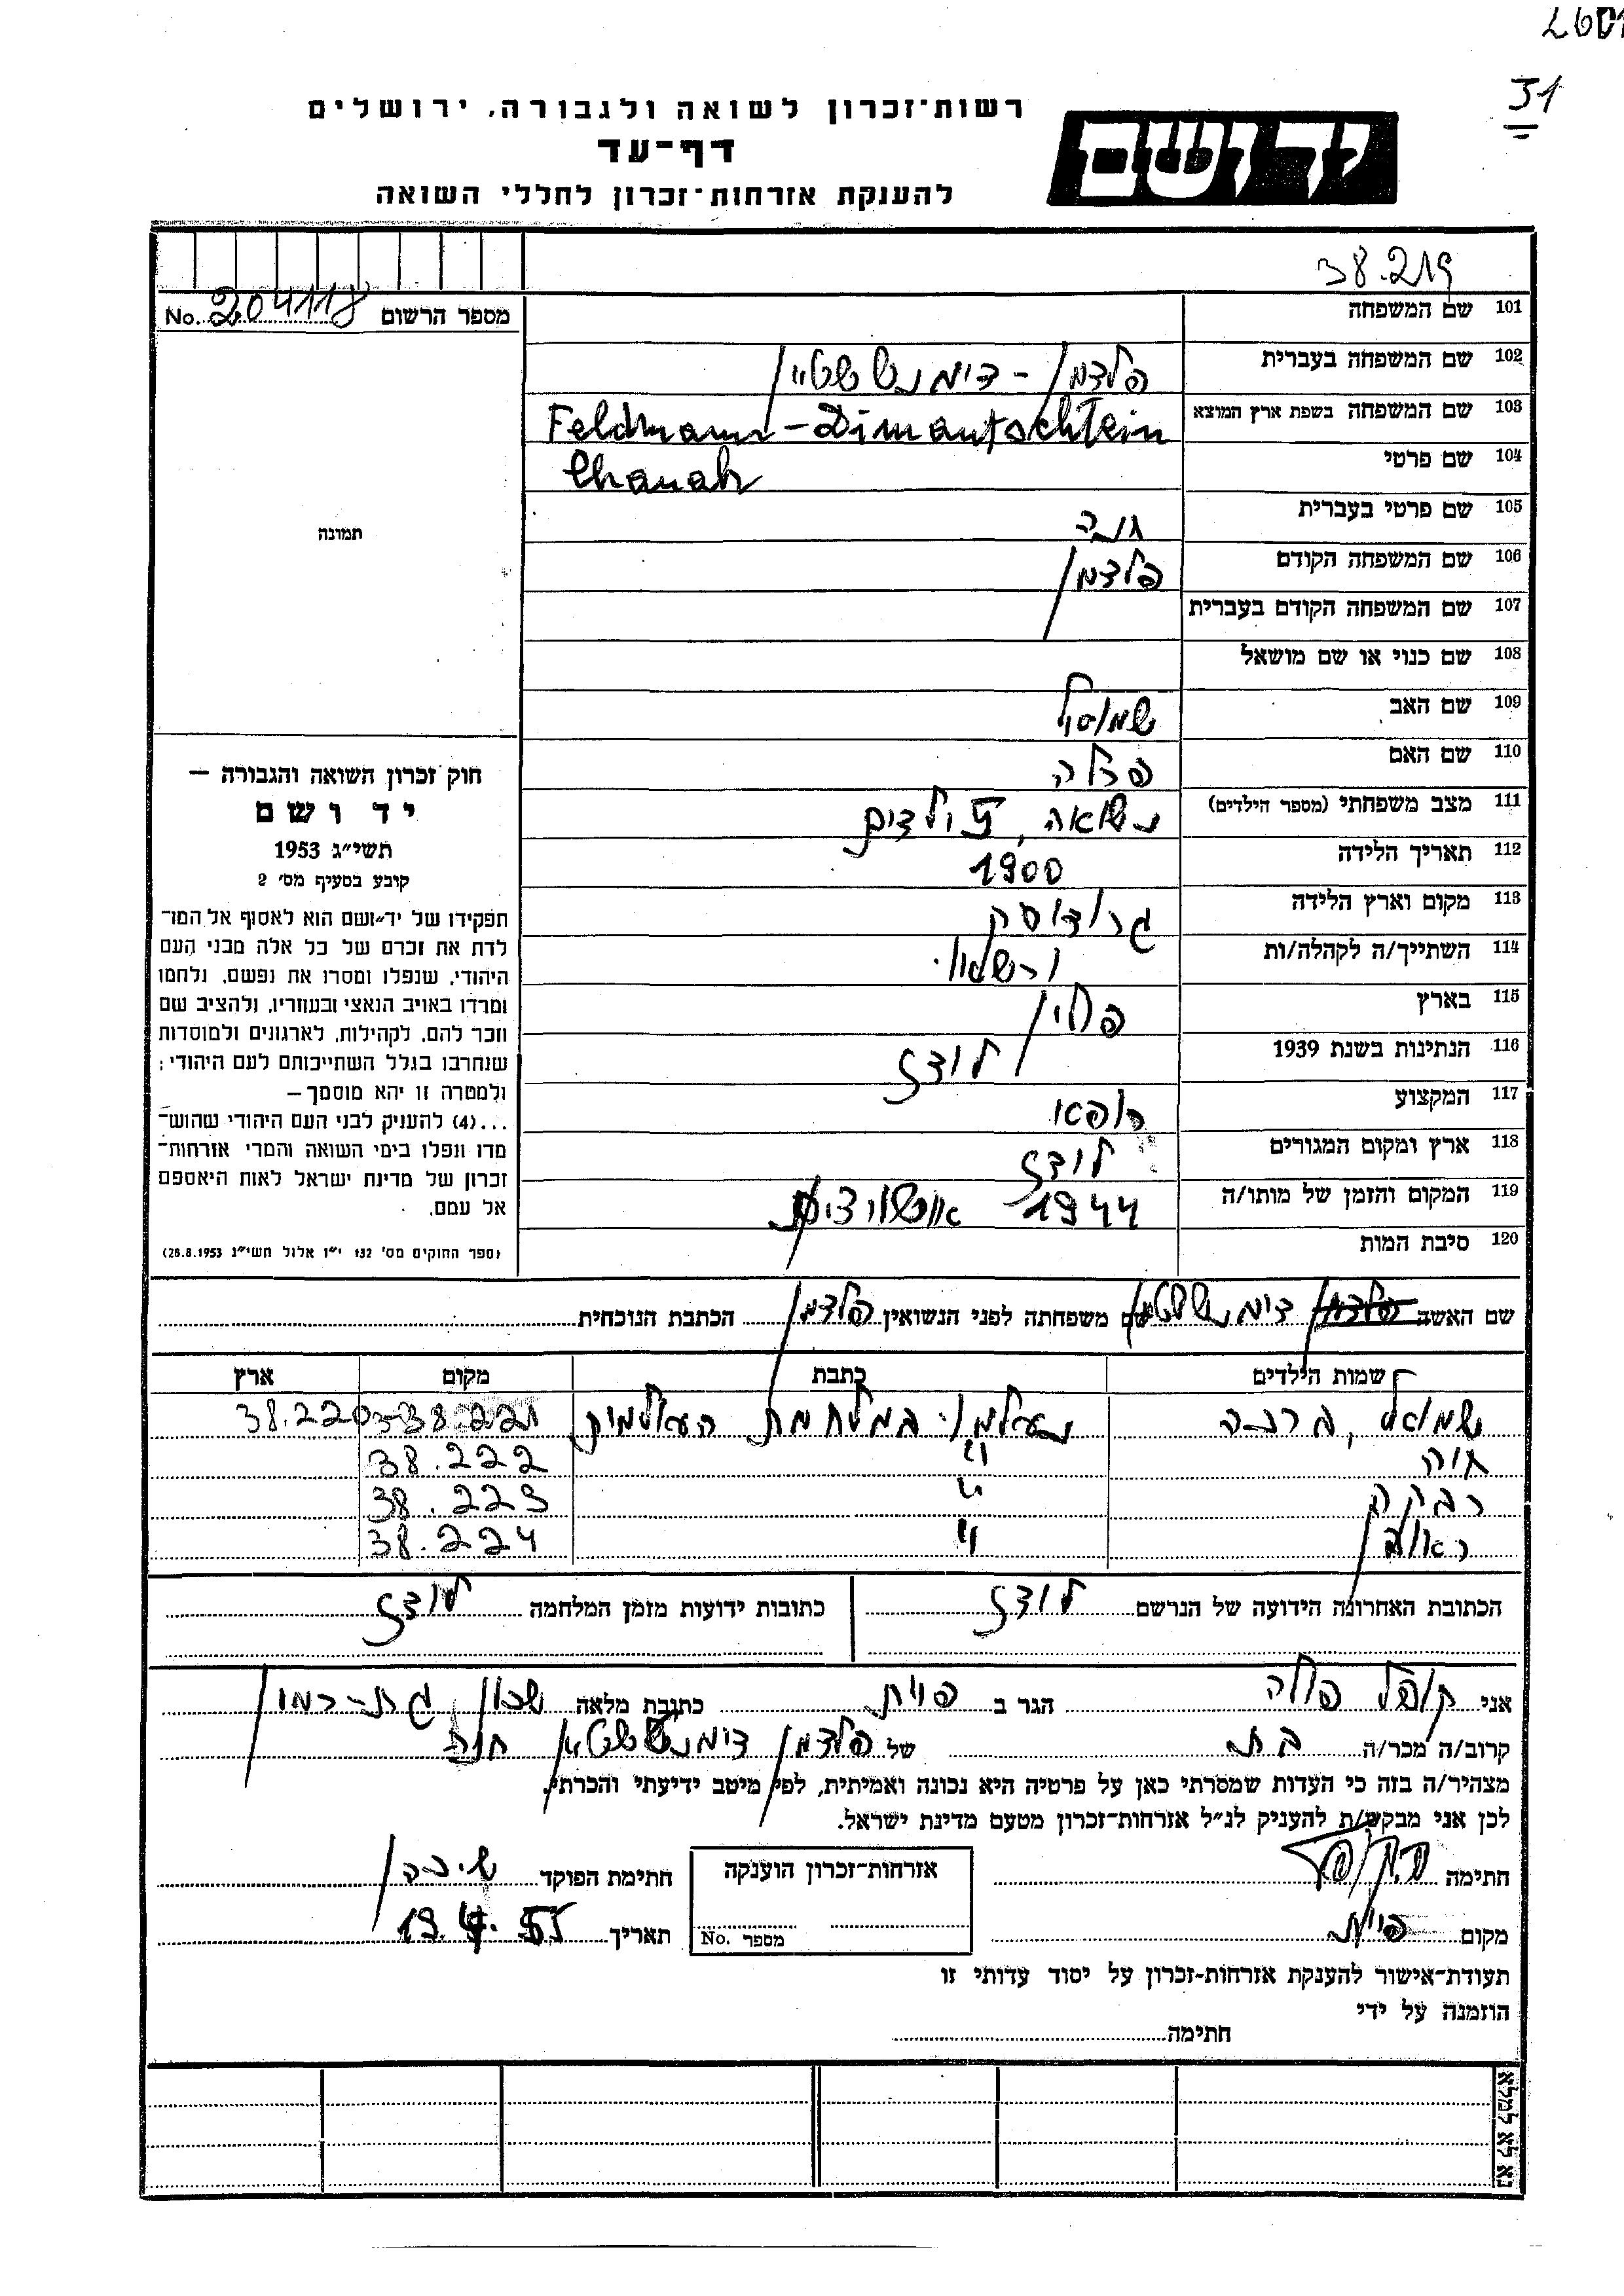 2601
31
רשות־זכרון לשואה ולגבורה, ירושלים
דף־עד
להענקת אזרחות־זכרון לחללי השואה
יד ושם
38.219
מספר הרשום No. 204118
תמונה
101 שם המשפחה
102 שם המשפחה בעברית פלדמן - דימנטשטיין
103 שם המשפחה בשפת ארץ המוצא Feldmann-Dimantschtein
104 שם פרטי Chanah
105 שם פרטי בעברית חנה
106 שם המשפחה הקודם פלדמן
107 שם המשפחה הקודם בעברית
108 שם כנוי או שם מושאל
109 שם האב
110 שם האם
111 מצב משפחתי (מספר הילדים) נשואה, 5 ילדים
112 תאריך הלידה 1900
113 מקום וארץ הלידה
114 השתייך/ה לקהלה/ות
115 בארץ פולין
116 הנתינות בשנת 1939 לודז
117 המקצוע
118 ארץ ומקום המגורים לודז
119 המקום והזמן של מותו/ה 1944
120 סיבת המות
חוק זכרון השואה והגבורה —
יד ושם
תשי״ג 1953
קובע בסעיף מס׳ 2
תפקידו של יד־ושם הוא לאסוף אל המו־
לדת את זכרם של כל אלה מבני העם
היהודי, שנפלו ומסרו את נפשם, נלחמו
ומרדו באויב הנאצי ובעוזריו, ולהציב שם
וזכר להם, לקהילות, לארגונים ולמוסדות
שנחרבו בגלל השתייכותם לעם היהודי;
ולמטרה זו יהא מוסמך —
...(4) להעניק לבני העם היהודי שהוש־
מדו ונפלו בימי השואה והמרי אזרחות־
זכרון של מדינת ישראל לאות היאספם
אל עמם.
(ספר החוקים מס׳ 132 י״ז אלול תשי״ג 28.8.1953)
שם האשה פלדמן דימנטשטיין שם משפחתה לפני הנשואין פלדמן הכתבת הנוכחית
שמות הילדים כתבת מקום ארץ
שמואל, ברכה נעלמו במלחמת העולמית 38.220-38.221
חוה " 38.222
רבקה " 38.223
ראובן " 38.224
הכתובת האחרונה הידועה של הנרשם לודז כתובות ידועות מזמן המלחמה לודז
אני קופל פולה הגר ב כתובת מלאה שכון גת-רמון
קרוב/ה מכר/ה בת של פלדמן דימנטשטיין חנה
מצהיר/ה בזה כי העדות שמסרתי כאן על פרטיה היא נכונה ואמיתית, לפי מיטב ידיעתי והכרתי.
לכן אני מבקש/ת להעניק לנ״ל אזרחות־זכרון מטעם מדינת ישראל.
חתימה אזרחות־זכרון הוענקה חתימת הפוקד
מקום מספר No. תאריך 19.4.55
תעודת־אישור להענקת אזרחות־זכרון על יסוד עדותי זו
הוזמנה על ידי
חתימה
נא לא למלא